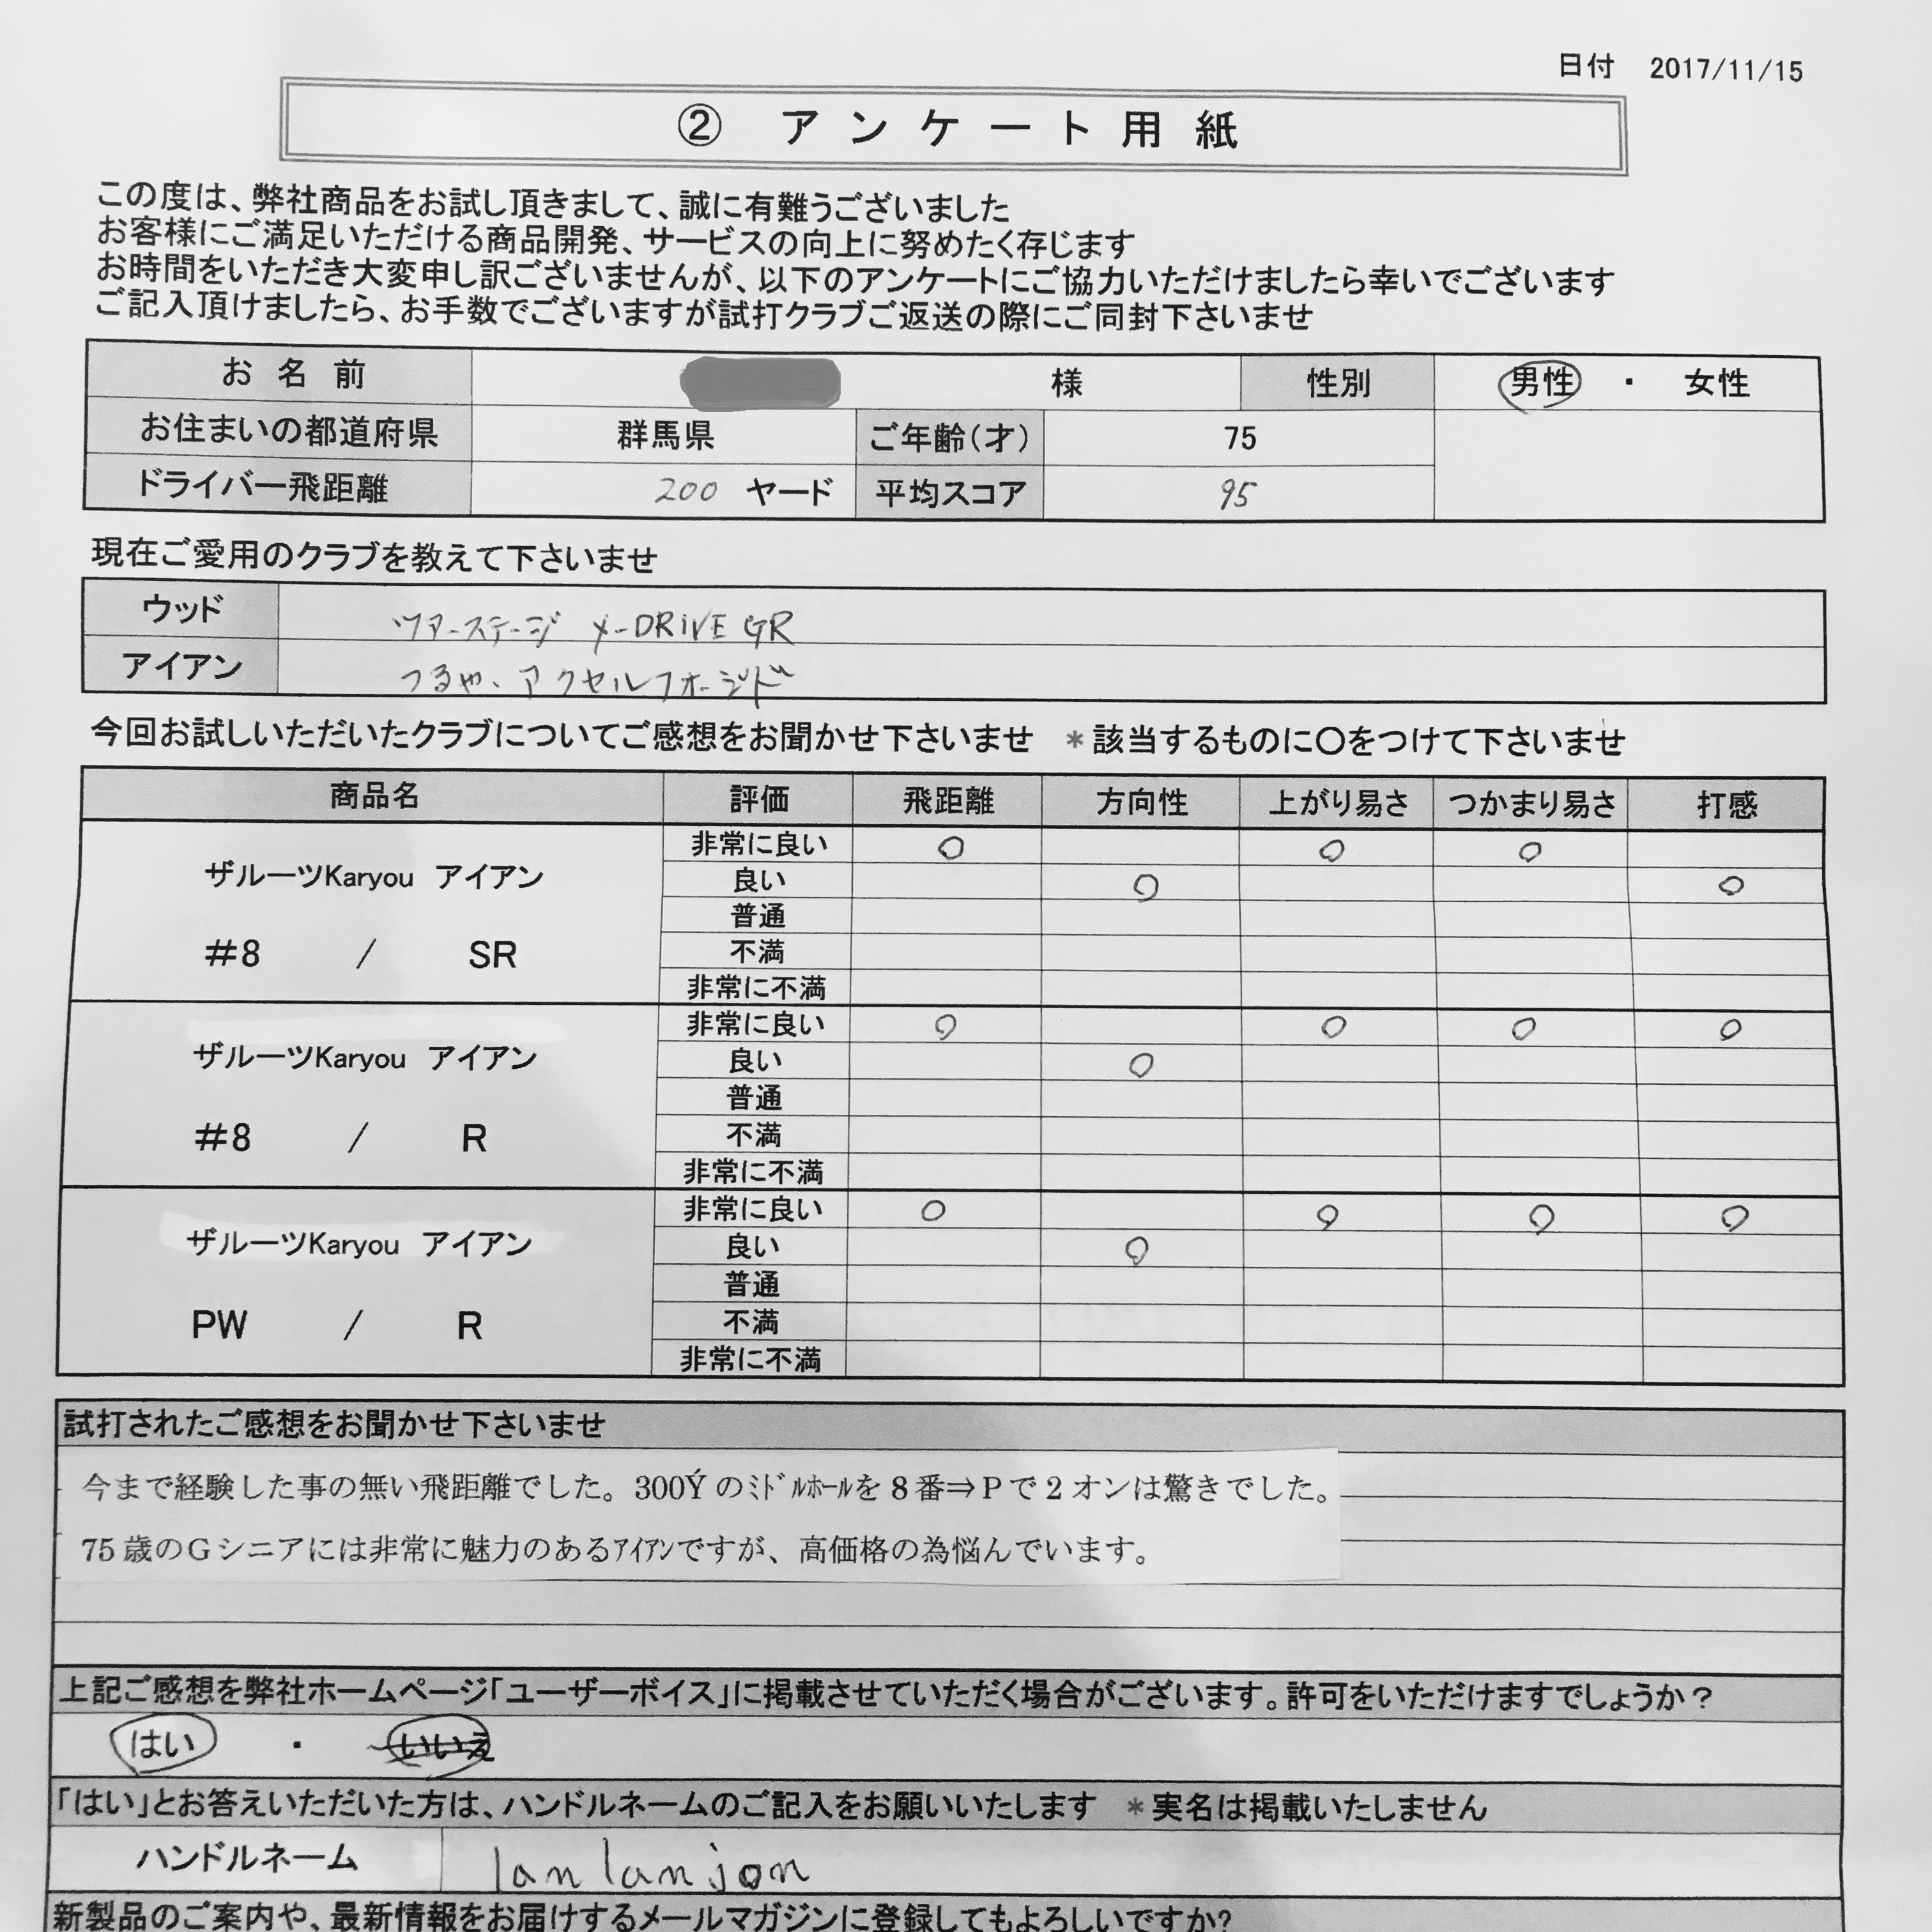 日付 2017/11/15
② アンケート用紙
この度は、弊社商品をお試し頂きまして、誠に有難うございました
お客様にご満足いただける商品開発、サービスの向上に努めたく存じます
お時間をいただき大変申し訳ございませんが、以下のアンケートにご協力いただけましたら幸いでございます
ご記入頂けましたら、お手数でございますが試打クラブご返送の際にご同封下さいませ
お名前 様 性別 男性 ・ 女性
お住まいの都道府県 群馬県 ご年齢(才) 75
ドライバー飛距離 200 ヤード 平均スコア 95
現在ご愛用のクラブを教えて下さいませ
ウッド ツアーステージ X-DRIVE GR
アイアン つるや、アクセルフォージド
今回お試しいただいたクラブについてご感想をお聞かせ下さいませ *該当するものに〇をつけて下さいませ
商品名 評価 飛距離 方向性 上がり易さ つかまり易さ 打感
ザルーツKaryou アイアン
#8 / SR
非常に良い 〇 〇 〇
良い 〇 〇
普通
不満
非常に不満
ザルーツKaryou アイアン
#8 / R
非常に良い 〇 〇 〇 〇
良い 〇
普通
不満
非常に不満
ザルーツKaryou アイアン
PW / R
非常に良い 〇 〇 〇 〇
良い 〇
普通
不満
非常に不満
試打されたご感想をお聞かせ下さいませ
今まで経験した事の無い飛距離でした。300Ýのﾐﾄﾞﾙﾎｰﾙを8番⇒Pで2オンは驚きでした。
75歳のGシニアには非常に魅力のあるｱｲｱﾝですが、高価格の為悩んでいます。
上記ご感想を弊社ホームページ「ユーザーボイス」に掲載させていただく場合がございます。許可をいただけますでしょうか?
はい ・ いいえ
「はい」とお答えいただいた方は、ハンドルネームのご記入をお願いいたします *実名は掲載いたしません
ハンドルネーム lanlanjon
新製品のご案内や、最新情報をお届けするメールマガジンに登録してもよろしいですか?